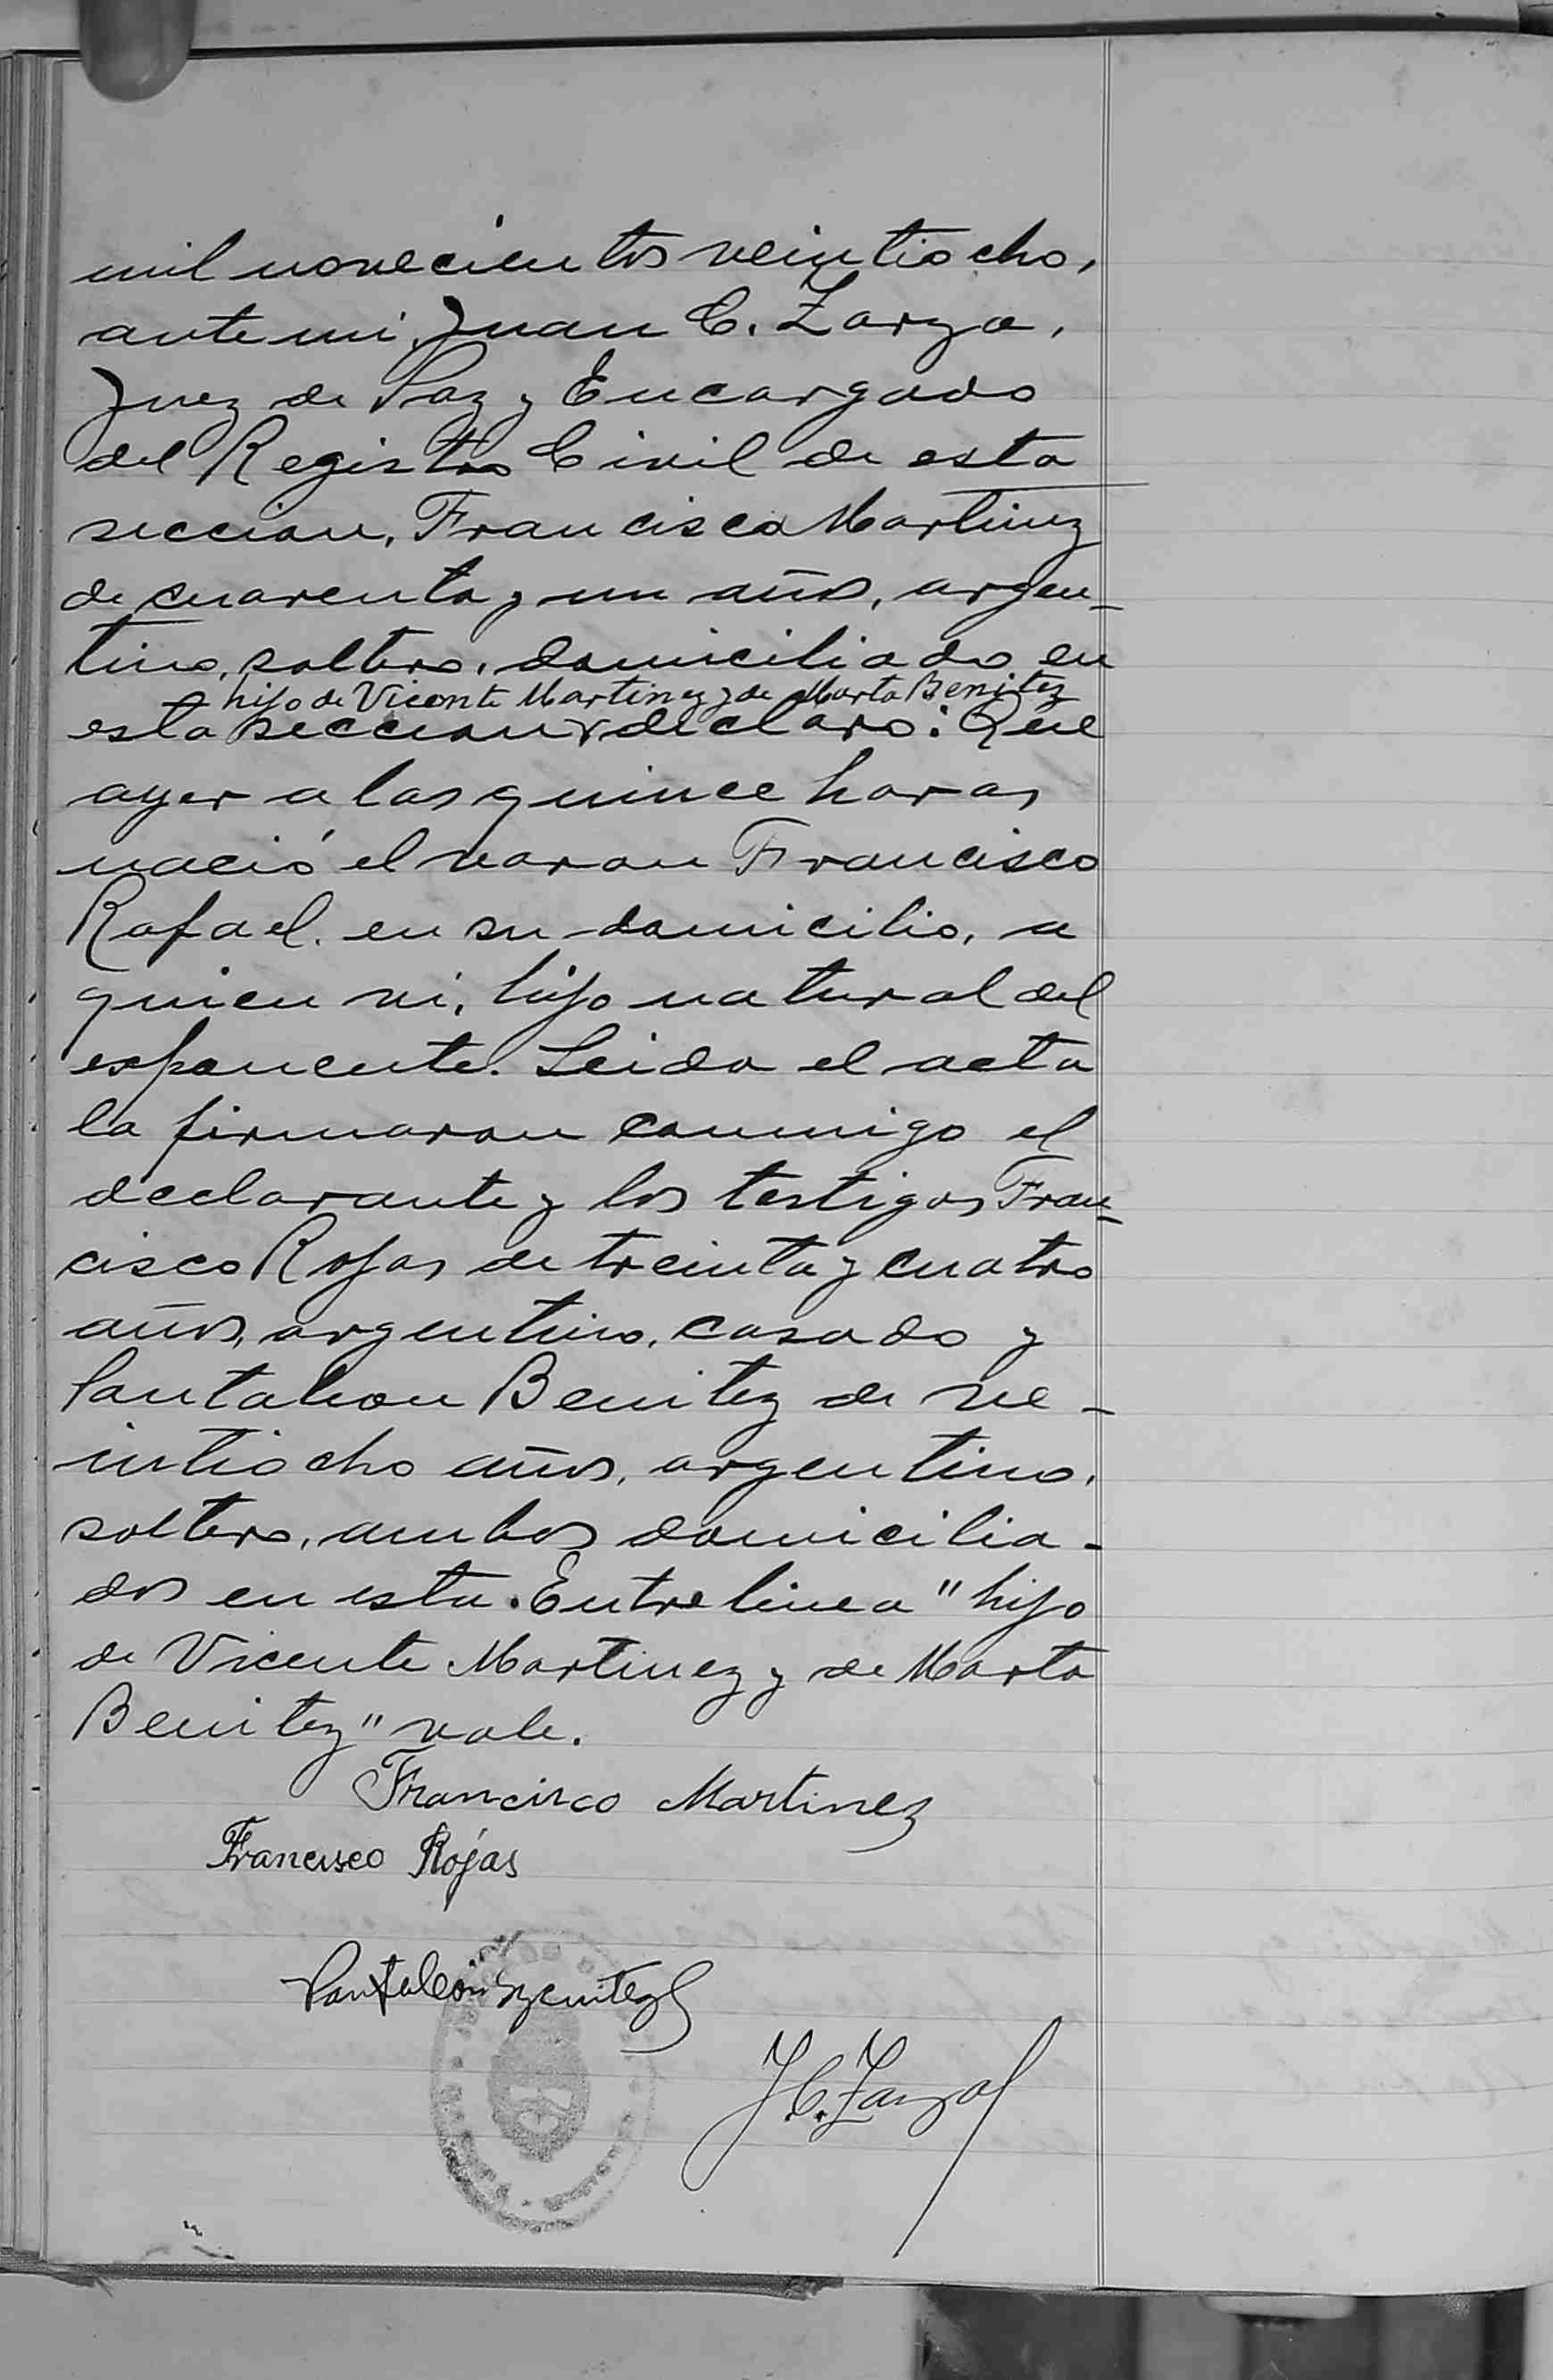 mil novecientos veintiocho,
ante mi, Juan C. Zarza,
Juez de Paz y Encargado
del Registro Civil de esta
seccion, Francisco Martinez
de cuarenta y un años, argen-
tino, soltero, domiciliado en
hijo de Vicente Martinez y de Marta Benitez
esta seccion declaro: Que
ayer a las quince horas
nació el varon Francisco
Rafael. en su domicilio, a
quien vi, hijo natural del
exponente. Leida el acta
la firmaron conmigo el
declarante y los testigos Fran-
cisco Rojas de treinta y cuatro
años, argentino, casado y
Pantaleon Benitez de ve-
intiocho años, argentino,
soltero, ambos domicilia-
dos en esta. Entre linea "hijo
de Vicente Martinez y de Marta
Benitez" vale.
Francisco Martinez
Francisco Rojas
Pantaleón Benitez
J. C. Zarza